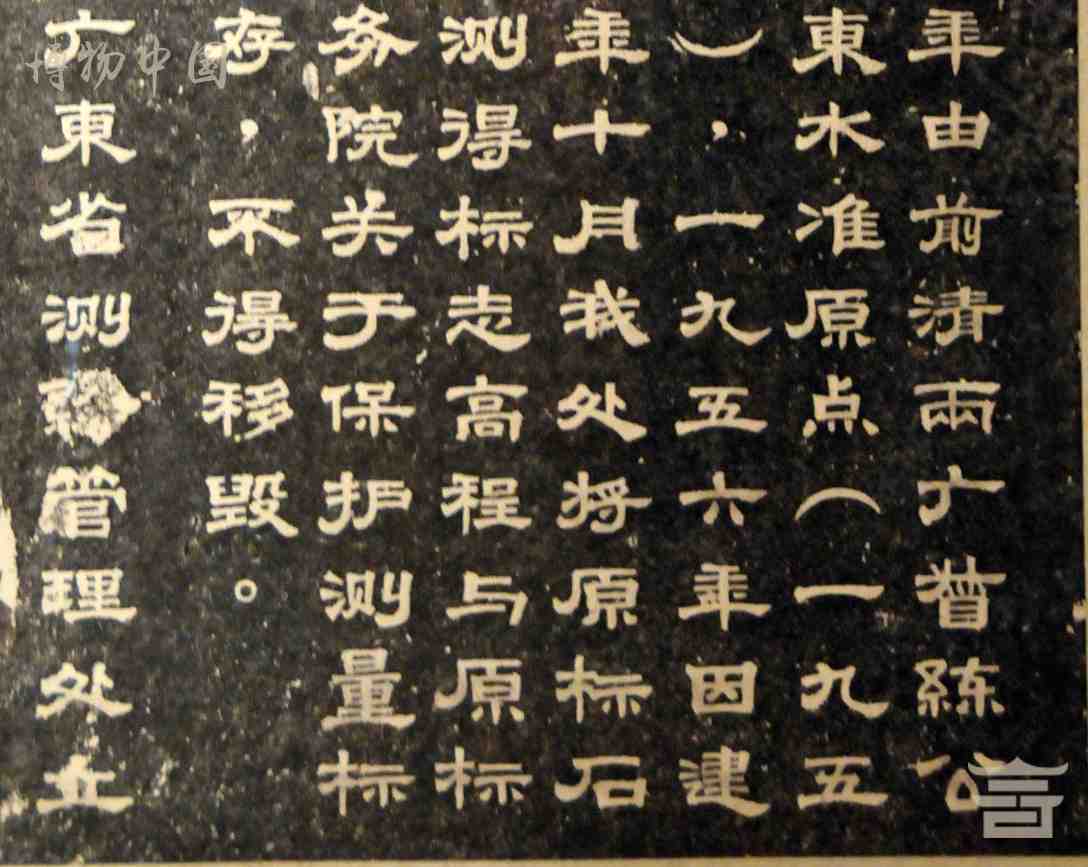 年由前清兩广督練公
東水准原点（一九五
），一九五六年因建
年十月我处将原标石
测得标志高程与原标
务院关于保护测量标
存，不得移毁。
广東省测管理处立
博物中国